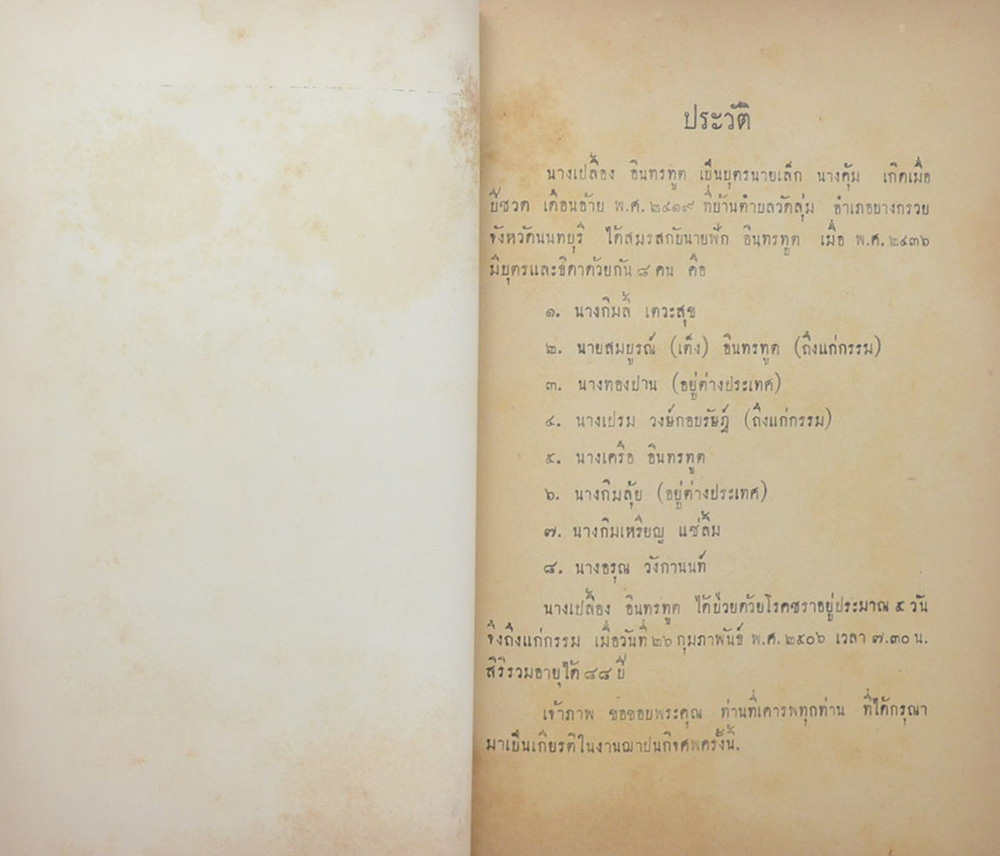 ประวัติ
นางเปลื้อง อินทรทูต เป็นบุตรนายเล็ก นางคุ้ม เกิดเมื่อ
ปีชวด เดือนอ้าย พ.ศ. ๒๔๑๙ ที่บ้านตำบลวัดลุ่ม อำเภอบางกรวย
จังหวัดนนทบุรี ได้สมรสกับนายฟัก อินทรทูต เมื่อ พ.ศ. ๒๔๓๖
มีบุตรและธิดาด้วยกัน ๘ คน คือ
๑. นางกิมลี้ เตวะสุข
๒. นายสมบูรณ์ (เต็ง) อินทรทูต (ถึงแก่กรรม)
๓. นางทองปาน (อยู่ต่างประเทศ)
๔. นางเปรม วงษ์กอบรัษฎ์ (ถึงแก่กรรม)
๕. นางเครือ อินทรทูต
๖. นางกิมลุ้ย (อยู่ต่างประเทศ)
๗. นางกิมเหรียญ แซ่ลิ้ม
๘. นางอรุณ วังกานนท์
นางเปลื้อง อินทรทูต ได้ป่วยด้วยโรคชราอยู่ประมาณ ๕ วัน
จึงถึงแก่กรรม เมื่อวันที่ ๒๖ กุมภาพันธ์ พ.ศ. ๒๕๐๖ เวลา ๗.๓๐ น.
สิริรวมอายุได้ ๘๘ ปี
เจ้าภาพ ขอขอบพระคุณ ท่านที่เคารพทุกท่าน ที่ได้กรุณา
มาเป็นเกียรติในงานฌาปนกิจศพครั้งนี้.